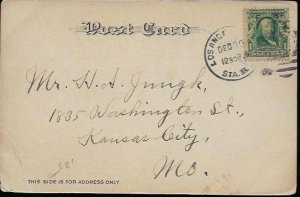 Post Card
LOS ANGE
DEC
STA.
Mr. H. A. Jungk,
1835 Washington St.,
Kansas City,
Mo.
THIS SIDE IS FOR ADDRESS ONLY